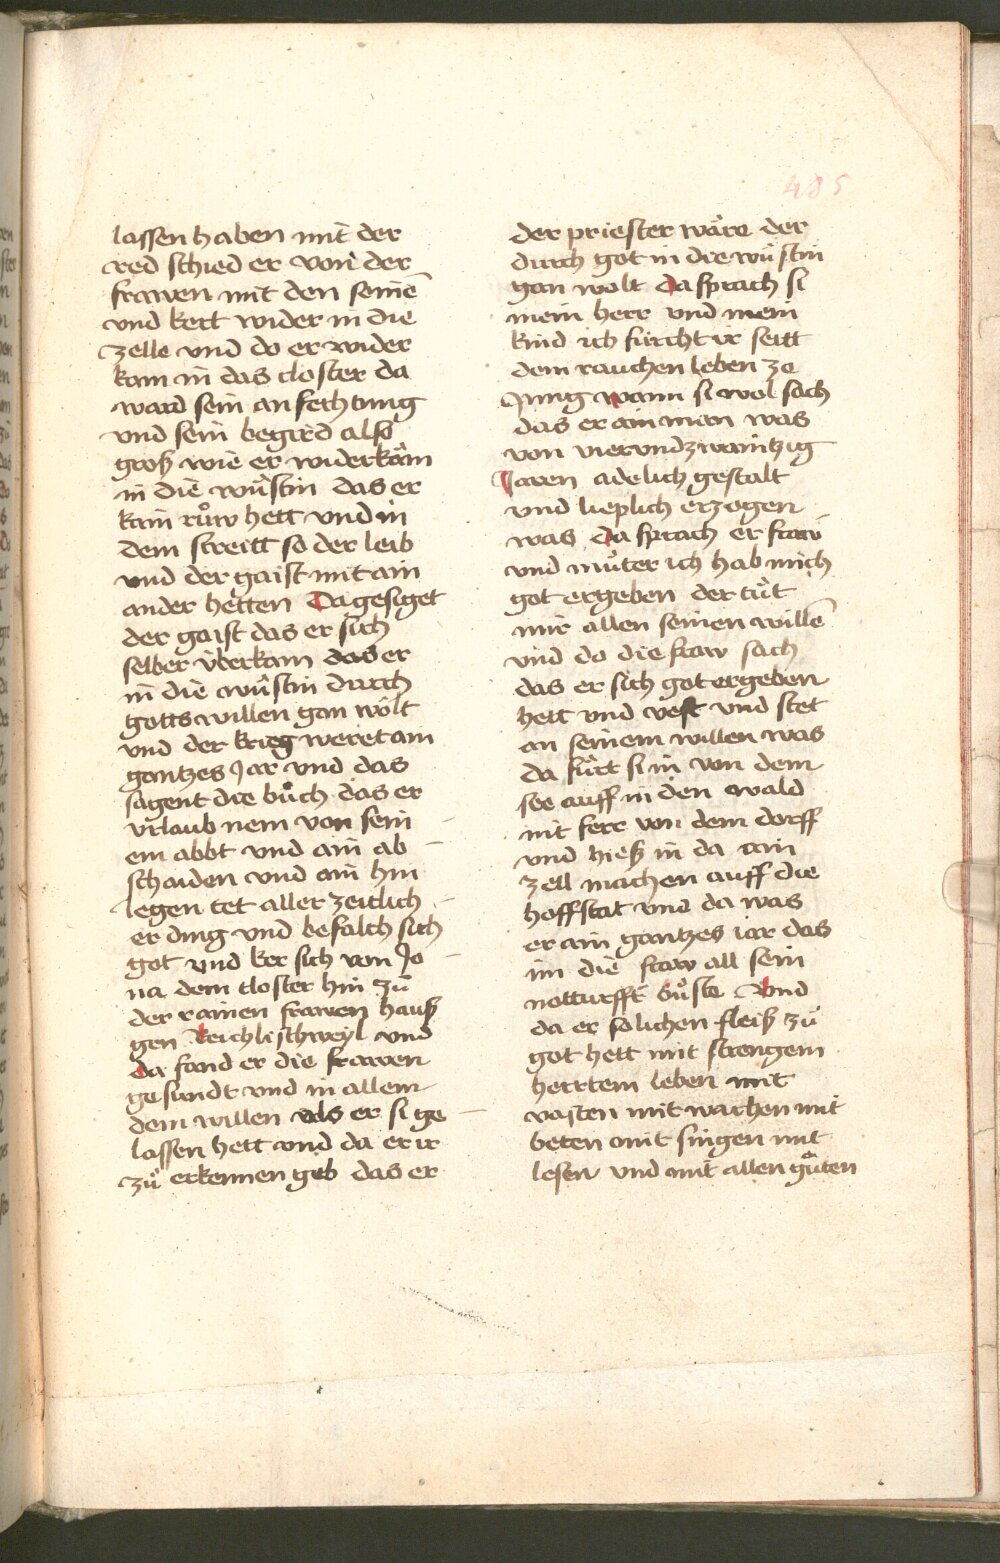 485
lassen haben mit der
red schied er von der
frawen mit den seinē
vnd kert wider in die
zelle vnd do er wider
kam in das closter da
ward sein anfechtung
vnd sein begird also
groß wie er widerkäm
in die wüstin das er
kain růw hett vnd in
dem streitt so der leib
vnd der gaist mit ain
ander hetten Da gesiget
der gaist das er sich
selber v̈berkam das er
in die wüstin durch
gotts willen gan wolt
vnd der krieg weret ain
gantzes Jar vnd das
sagent die bůch das er
vrlaub nem von sein
em abbt vnd ain ab
schaiden vnd ain hin
legen tet aller zeitlich
er ding vnd befalch sich
got vnd ker sich vom Jo
na dem closter hin zů
der rainen frawen hauß
gen Reichlischweyl vnd
da fand er die frawen
gesundt vnd in allem
dem willen als er si ge
lassen hett vnd da er ir
zů erkennen geb das er
der priester wäre der
durch got in die wüstin
gan wolt da sprach si
mein herr vnd mein
kind ich fürcht ir seitt
dem rauchen leben ze
Jung wann si wol sach
das er ain man was
von vierundzwaintzig
Jaren adelich gestalt
vnd lieplich erzogen
was da sprach er fraw
vnd můter ich hab mich
got ergeben der tůt
mir allen seinen willē
vnd do die fraw sach
das er sich got ergeben
hett vnd vest vnd stet
an seinem willen was
da fürt si in von dem
see auff in den wald
nit ferr von dem dorff
vnd hieß in da ain
zell machen auff die
hoffstat vnd da was
er ain gantzes iar das
im die fraw all sein
notturfft bůste Vnd
da er solichen fleiß zů
got hett mit strengem
herrtem leben mit
vasten mit wachen mit
beten mit singen mit
lesen vnd mit allen gůten